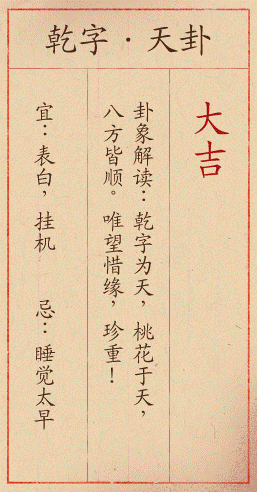 乾字·天卦
大吉
卦象解读：乾字为天，桃花于天，
八方皆顺。唯望惜缘，珍重！
宜：表白，挂机 忌：睡觉太早